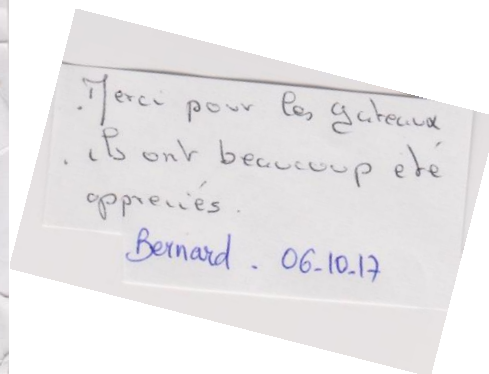 .Merci pour les gateaux
. ils ont beaucoup eté
appreciés.
Bernard . 06-10-17